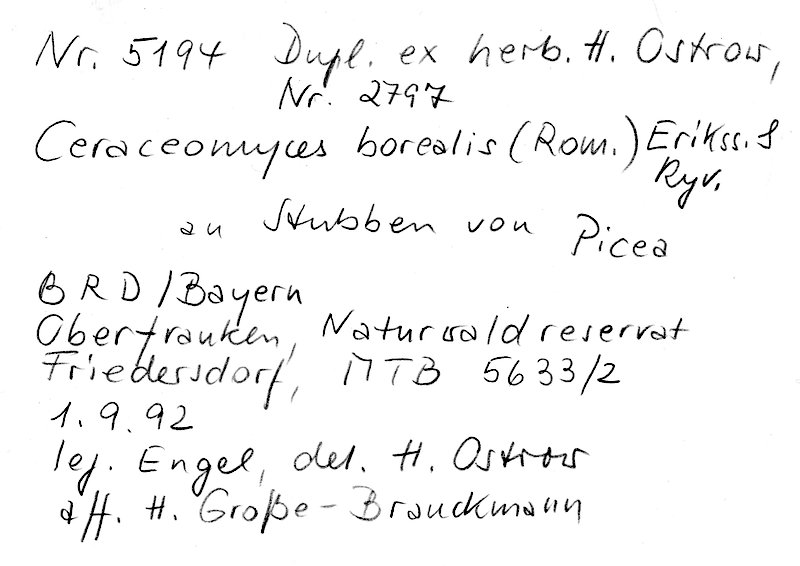 Nr. 5194 Dupl. ex herb. H. Ostrow,
Nr. 2797
Ceraceomyces borealis (Rom.) Erikss. &
Ryv.
an Stubben von Picea
BRD/Bayern
Oberfranken, Naturwaldreservat
Friedersdorf, MTB 5633/2
1.9.92
leg. Engel, det. H. Ostrow
aff. H. Große-Brauckmann